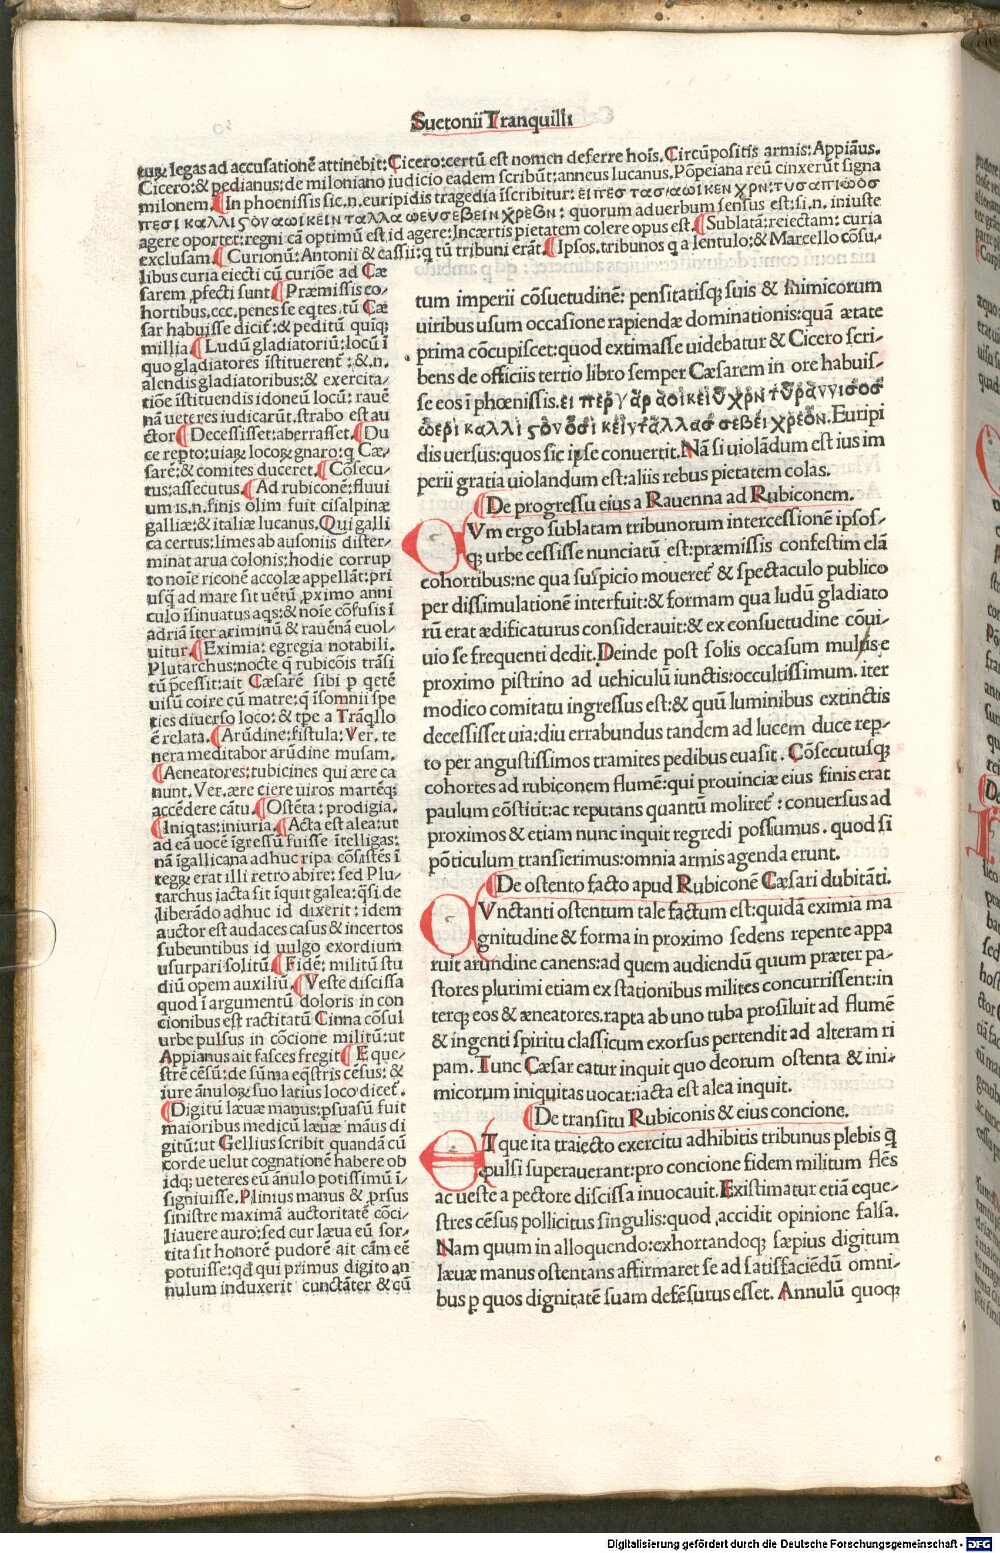 Suetonii Tranquilli
tuꝝ legas ad accusationē attinebit: Cicero: certū est nomen deferre hoīs. Circūpositis armis: Appiāus.
Cicero: & pedianus: de miloniano iudicio eadem scribūt: anneus lucanus. Pōpeiana reū cinxerūt signa
milonem. In phoenissis sic. n. euripidis tragedia īscribitur:
quorum aduerbum sensus est: si. n. iniuste
agere oportet: regni cā optimū est id agere: Incærtis pietatem colere opus est. Sublatā: reiectam: curia
exclusam. Curionū: Antonii & cassii: q tū tribuni erāt. Ipsos. tribunos q a lentulo: & Marcello cōsu-
libus curia eiecti cū curiōe ad Cæ
sarem ꝓfecti sunt Præmissis co-
hortibus. ccc. penes se eqtes. tū Cæ
sar habuisse dicit᷑: & peditū quiqꝫ
millia. Ludū gladiatoriū: locū ī
quo gladiatores īstituerent᷑: & .n.
alendis gladiatoribus: & exercita-
tiōe īstituendis idoneū locū: rauē
nā ueteres iudicarūt. strabo est au
ctor Decessisset: aberrasset. Du
ce repto: uiaꝝ locoꝝ gnaro: q Cæ-
sarē: & comites duceret. Cōsecu-
tus: assecutus. Ad rubiconē: fluui
um is. n. finis olim fuit cisalpinæ
galliæ: & italiæ lucanus. Qui galli
ca certus: limes ab ausoniis dister-
minat arua colonis: hodie corrup
to noīe riconē accolæ appellāt: pri
usq̄ ad mare sit uētū ꝓximo anni
culo īsinuatus aqs: & noīe cōfusis ī
adriā iter ariminū & rauēnā euol-
uitur. Eximia: egregia notabili.
Plutarchus: nocte q̄ rubicōis trāsi
tū p̄cessit: ait Cæsarē sibi p qetē
uisū coire cū matre: q īsomnii spe
ties diuerso loco: & tpe a Trāqllo
ē relata. Arūdine: fistula: Ver. te
nera meditabor arūdine musam.
Aeneatores: tubicines qui ære ca
nunt. Ver. ære ciere uiros martēqꝫ
accēdere cātu. Ostēta: prodigia.
Iniqtas: iniuria. Acta est alea: ut
ad eā uocē īgressū fuisse ītelligas:
nā īgallicana adhuc ripa cōsistēs ī
tegꝝ erat illi retro abire: sed Plu-
tarchus iacta sit īquit galea: q̄si. de
liberādo adhuc id dixerit: idem
auctor est audaces casus & incertos
subeuntibus id uulgo exordium
usurpari solitū. Fidē: militū stu
diū opem auxiliū. Veste discissa
quod ī argumentū doloris in con
cionibus est ractitatū Cinna cōsul
urbe pulsus in cōcione militū: ut
Appianus ait fasces fregit Eque-
strē cēsū: de sūma eq̄stris cēsus: &
iure ānuloꝝ suo latius loco dicet᷑.
Digitū læuæ manus: ꝑsuasū fuit
maioribus medicū læuæ māus di
gitū: ut Gellius scribit quandā cū
corde uelut cognationē habere ob
idqꝫ ueteres eū ānulo potissimū ī-
signiuisse. Plinius manus & ꝓrsus
sinistre maximā auctoritatē cōci-
liauere auro: sed cur læua eū for-
tita sit honorē pudorē ait cām eē
potuisse: qd̄ qui primus digito an
nulum induxerit cunctāter & cū
tum imperii cōsuetudinē: pensitatisqꝫ suis & inimicorum
uiribus usum occasione rapiendæ dominationis: quā ætate
prima cōcupiscet: quod extimasse uidebatur & Cicero scri-
bens de officiis tertio libro semper Cæsarem in ore habuis-
se eos ī phœnissis.
Euripi
dis uersus: quos sic ipse conuertit. Nā si uiolādum est ius im
perii gratia uiolandum est: aliis rebus pietatem colas.
De progressu eius a Rauenna ad Rubiconem.
Cvm ergo sublatam tribunorum intercessionē ipsos-
qꝫ urbe cessisse nunciatū est: præmissis confestim clā
cohortibus: ne qua suspicio moueret᷑ & spectaculo publico
per dissimulationē interfuit: & formam qua ludū gladiato
rū erat ædificaturus considerauit: & ex consuetudine cōui-
uio se frequenti dedit. Deinde post solis occasum mulis e
proximo pistrino ad uehiculū iunctis: occultissimum. iter
modico comitatu ingressus est: & quū luminibus extinctis
decessisset uia: diu errabundus tandem ad lucem duce rep-
to per angustissimos tramites pedibus euasit. Cōsecutusqꝫ
cohortes ad rubiconem flumē: qui prouinciæ eius finis erat
paulum cōstitit: ac reputans quantū moliret᷑: conuersus ad
proximos & etiam nunc inquit regredi possumus. quod si
pōticulum transierimus: omnia armis agenda erunt.
De ostento facto apud Rubiconē Cæsari dubitāti.
Cvnctanti ostentum tale factum est: quidā eximia ma
gnitudine & forma in proximo sedens repente appa
ruit arundine canens: ad quem audiendū quum præter pa-
stores plurimi etiam ex stationibus milites concurrissent: in
terqꝫ eos & æneatores. rapta ab uno tuba prosiluit ad flumē
& ingenti spiritu classicum exorsus pertendit ad alteram ri
pam. Tunc Cæsar eatur inquit quo deorum ostenta & ini-
micorum iniquitas uocat: iacta est alea inquit.
De transitu Rubiconis & eius concione.
ET que ita traiecto exercitu adhibitis tribunus plebis q̄
pulsi superauerant: pro concione fidem militum flēs
ac ueste a pectore discissa inuocauit. Existimatur etiā eque-
stres cēsus pollicitus singulis: quod, accidit opinione falsa.
Nam quum in alloquendo: exhortandoqꝫ sæpius digitum
læuæ manus ostentans affirmaret se ad satisfaciēdū omni-
bus p quos dignitatē suam defēsurus esset. Annulū quoqꝫ
Digitalisierung gefördert durch die Deutsche Forschungsgemeinschaft - DFG